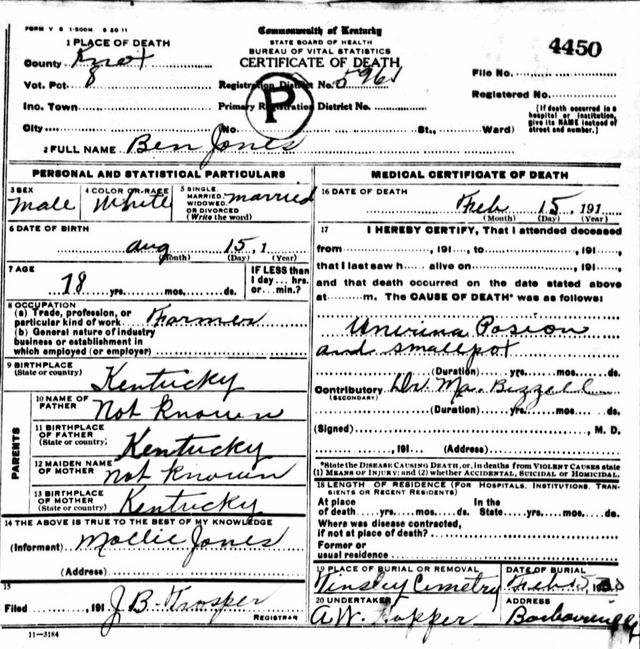 FORM V S 1-500M 6 20 11
Commonwealth of Kentucky
STATE BOARD OF HEALTH
BUREAU OF VITAL STATISTICS
CERTIFICATE OF DEATH
4450
1 PLACE OF DEATH
County Knox
8
Vot. Pct.
Inc. Town
City
Registration District No. 5961
Primary Registration District No.
P
(No. St., Ward)
File No.
Registered No.
[If death occurred in a hospital or institution, give its NAME instead of street and number.]
2 FULL NAME Ben Jones
PERSONAL AND STATISTICAL PARTICULARS
3 SEX
Male
4 COLOR OR RACE
White
5 SINGLE, MARRIED, WIDOWED, OR DIVORCED
(Write the word)
married
6 DATE OF BIRTH
Aug 15, 1
(Month) (Day) (Year)
7 AGE
78 yrs. mos. ds.
IF LESS than
1 day... hrs.
or... min.?
8 OCCUPATION
(a) Trade, profession, or
particular kind of work Farmer
(b) General nature of industry
business or establishment in
which employed (or employer)
9 BIRTHPLACE
(State or country)
Kentucky
PARENTS
10 NAME OF FATHER
Not Known
11 BIRTHPLACE OF FATHER
(State or country)
Kentucky
12 MAIDEN NAME OF MOTHER
not Known
13 BIRTHPLACE OF MOTHER
(State or country)
Kentucky
14 THE ABOVE IS TRUE TO THE BEST OF MY KNOWLEDGE
(Informant) Mollie Jones
(Address)
15
Filed , 191 J B Trosper
REGISTRAR
11-3184
MEDICAL CERTIFICATE OF DEATH
16 DATE OF DEATH
Feb 15, 191
(Month) (Day) (Year)
17 I HEREBY CERTIFY, That I attended deceased
from , 191 , to , 191 ,
that I last saw h alive on , 191 ,
and that death occurred on the date stated above
at m. The CAUSE OF DEATH* was as follows:
Posion
and smallpox
(Duration) yrs. mos. ds.
Contributory Dr
(SECONDARY)
(Duration) yrs. mos. ds.
(Signed) , M. D.
, 191 (Address)
*State the DISEASE CAUSING DEATH, or, in deaths from VIOLENT CAUSES state
(1) MEANS OF INJURY; and (2) whether ACCIDENTAL, SUICIDAL or HOMICIDAL.
18 LENGTH OF RESIDENCE (FOR HOSPITALS, INSTITUTIONS, TRANSIENTS OR RECENT RESIDENTS)
At place of death yrs. mos. ds. In the State yrs. mos. ds.
Where was disease contracted,
if not at place of death?
Former or
usual residence
19 PLACE OF BURIAL OR REMOVAL
Tinsley Cemetry
DATE OF BURIAL
Feb 15, 191
20 UNDERTAKER
A.W. Hopper
ADDRESS